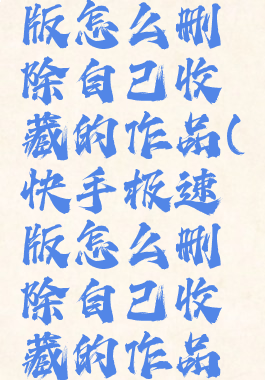 版怎么删
除自己收
藏的作品(
快手极速
版怎么删
除自己收
藏的作品